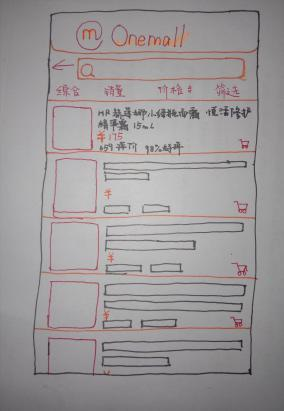 m Onemall
综合 销量 价格 筛选
HR 赫莲娜小绿瓶面霜 悦活修护
精华霜 15mL
¥175
659评价 98%好评
¥
¥
¥